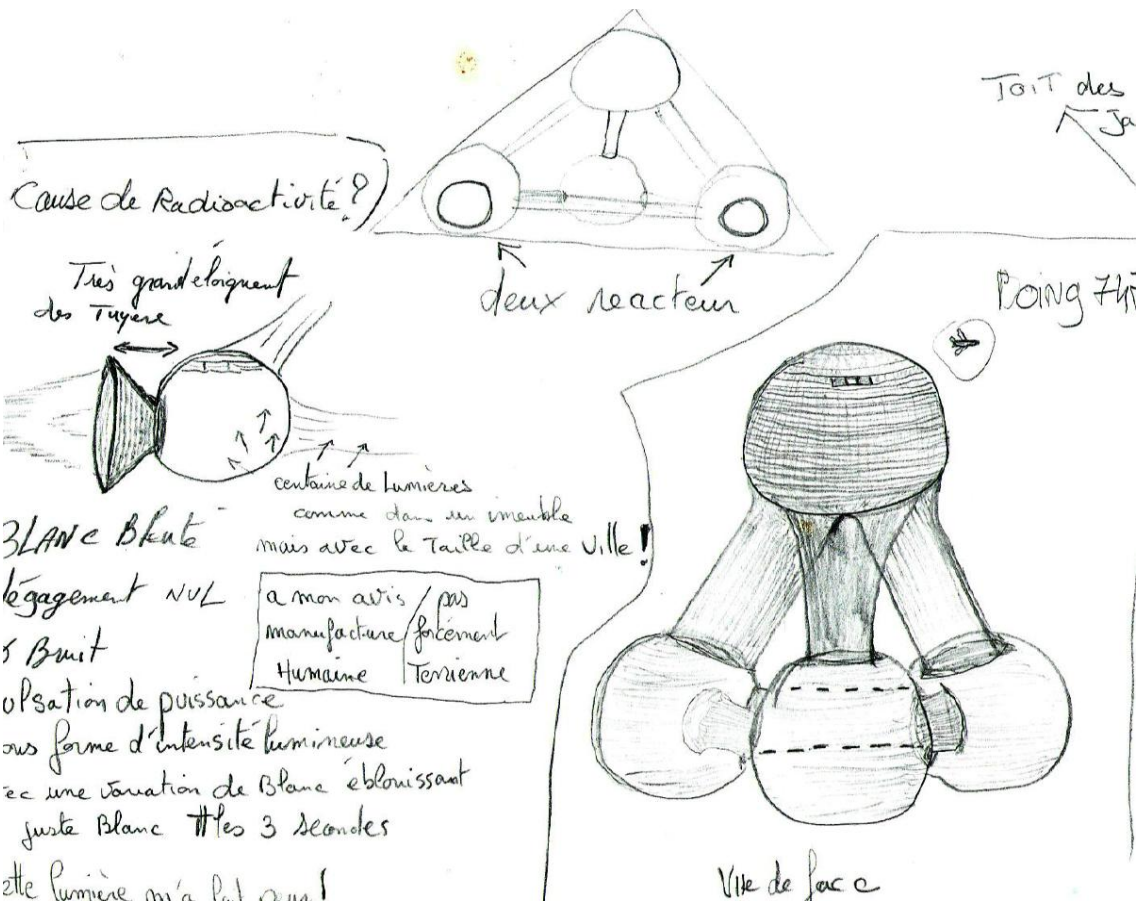 Toit des
Cause de Radioactivité?
deux reacteur
Très grand eloignent
des Tuyere
Boing
centaine de Lumières
comme dans un imeuble
mais avec la Taille d'une Ville!
BLANC Bleuté
dégagement NUL
Bruit
a mon avis / pas
manufacture / forcément
Humaine / Terrienne
ulsation de puissance
ous forme d'intensité lumineuse
ec une variation de Blanc éblouissant
juste Blanc les 3 secondes
ette lumière m'a fait peur!
Vue de face